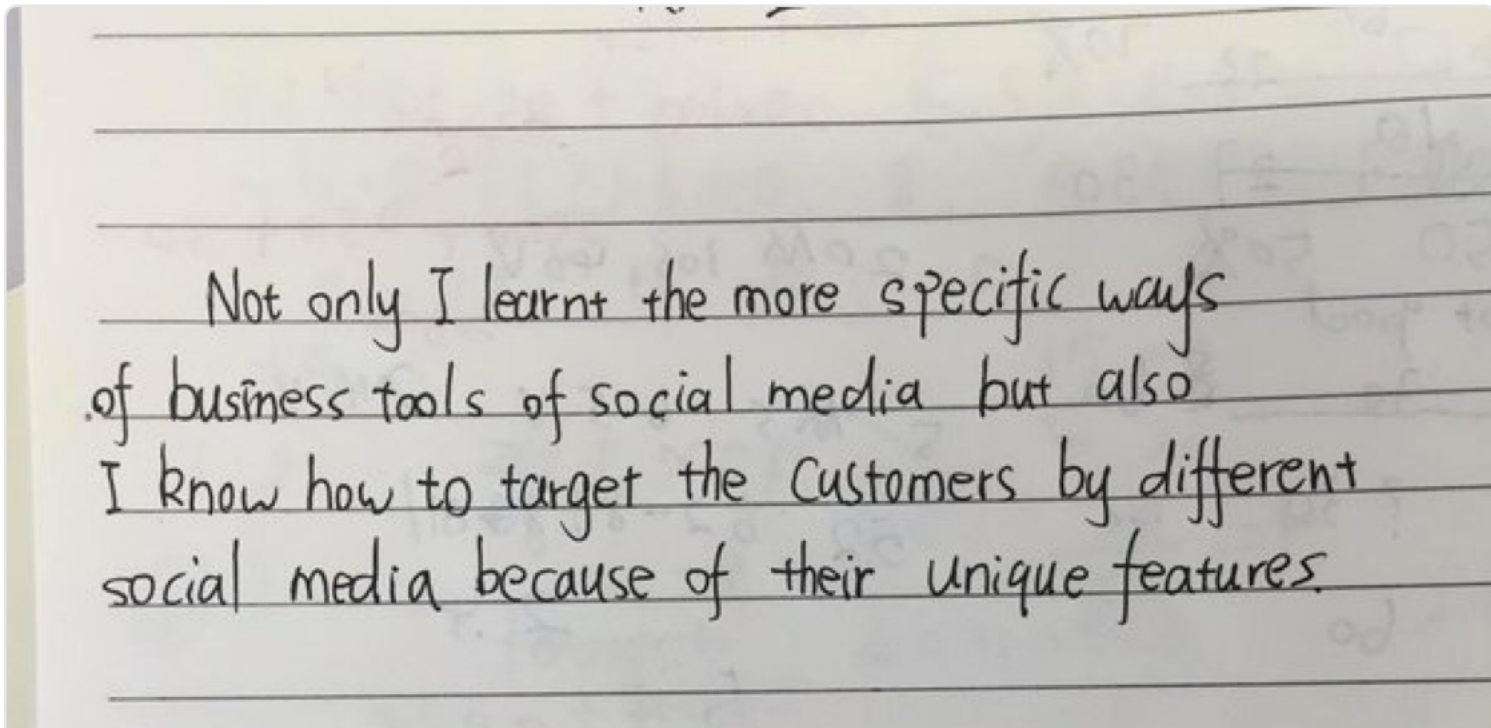 Not only I learnt the more specific ways
of business tools of social media but also
I know how to target the customers by different
social media because of their unique features.